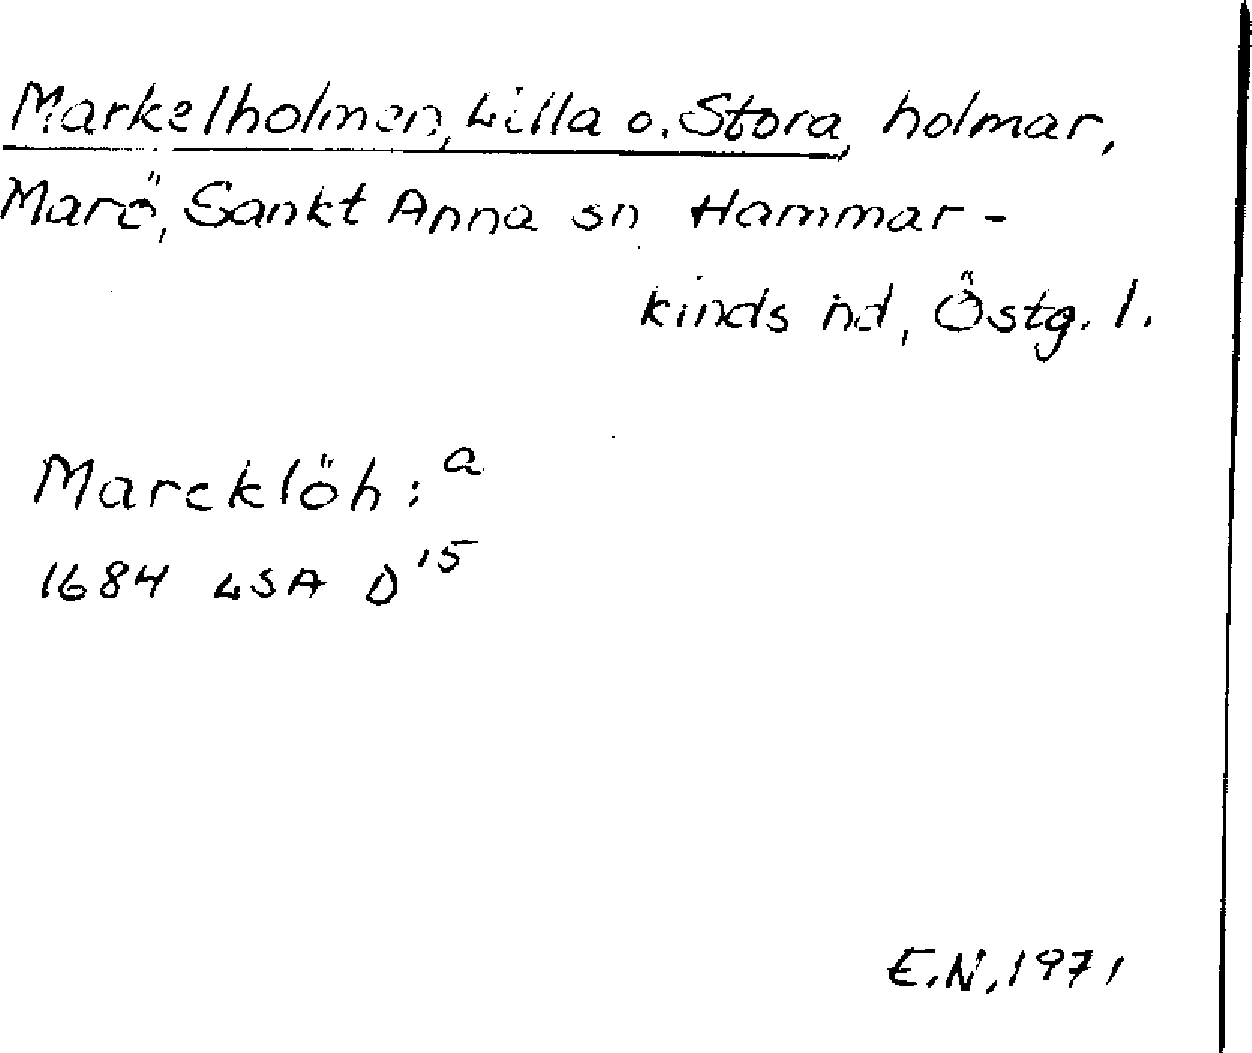 Markelholmen, Lilla o. Stora, holmar,
Marö, Sankt Anna sn Hammar-
kinds hd, Östg. l.
Marcklöh:a
1684 LSA D15
E.N, 1971